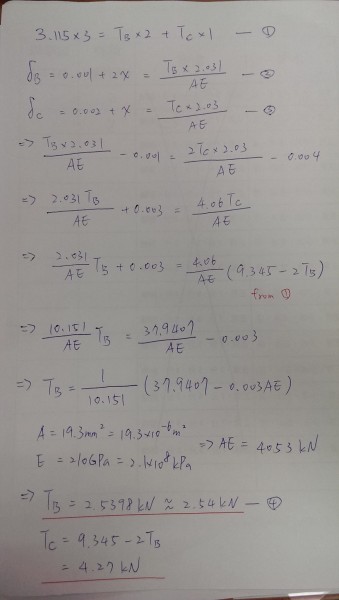 3.115×3 = T_B×2 + T_C×1 — ①
δ_B = 0.001 + 2x = T_B×2.031 / AE — ②
δ_C = 0.002 + x = T_C×2.03 / AE — ③
⇒ T_B×2.031 / AE - 0.001 = 2T_C×2.03 / AE - 0.004
⇒ 2.031 T_B / AE + 0.003 = 4.06 T_C / AE
⇒ 2.031 / AE T_B + 0.003 = 4.06 / AE (9.345 - 2T_B)
from ①
⇒ 10.151 / AE T_B = 37.9407 / AE - 0.003
⇒ T_B = 1 / 10.151 (37.9407 - 0.003AE)
A = 19.3mm² = 19.3×10⁻⁶ m²
⇒ AE = 4053 kN
E = 210GPa = 2.1×10⁸ kPa
⇒ T_B = 2.5398kN ≈ 2.54kN — ④
T_C = 9.345 - 2T_B
= 4.27kN